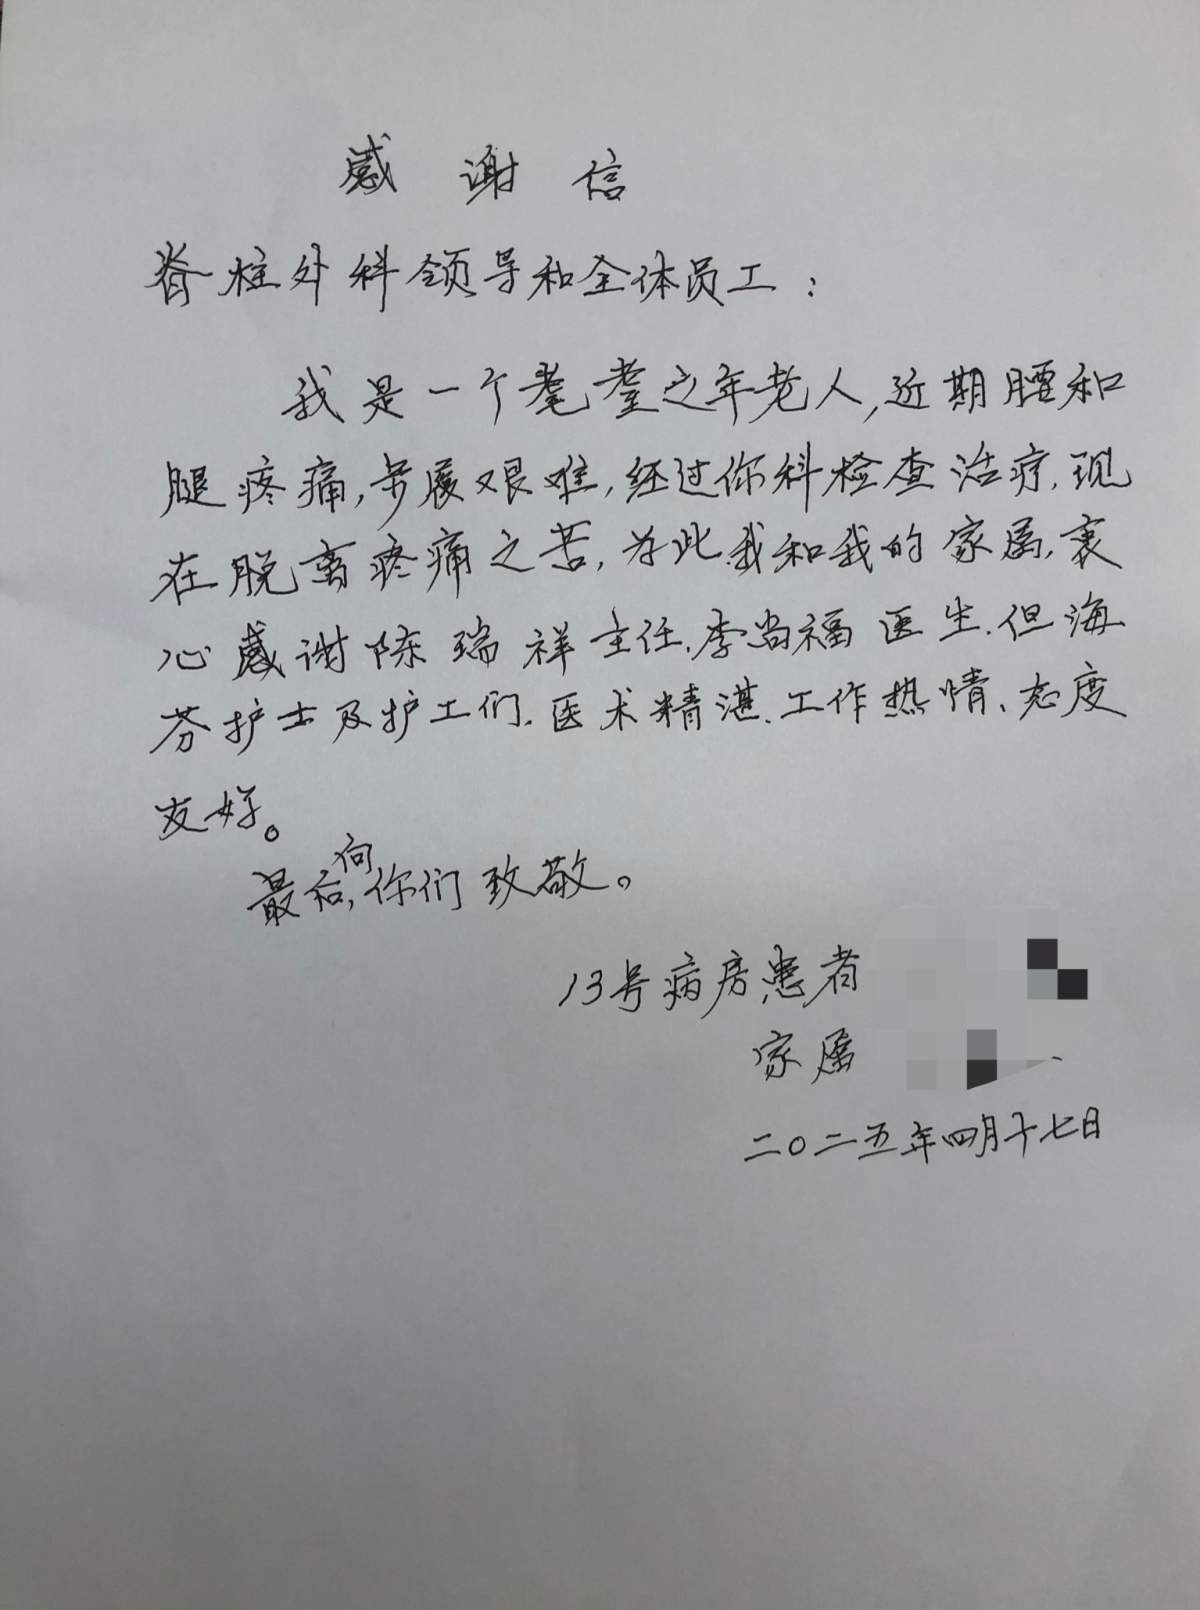 感谢信
脊柱外科领导和全体员工：
我是一个耄耋之年老人,近期腰和
腿疼痛,步履艰难,经过你科检查治疗,现
在脱离疼痛之苦,为此我和我的家属,衷
心感谢陈瑞祥主任.李尚福医生.但海
芬护士及护工们.医术精湛.工作热情、态度
友好。
最后,向你们致敬。
13号病房患者
家属
二〇二五年四月十七日